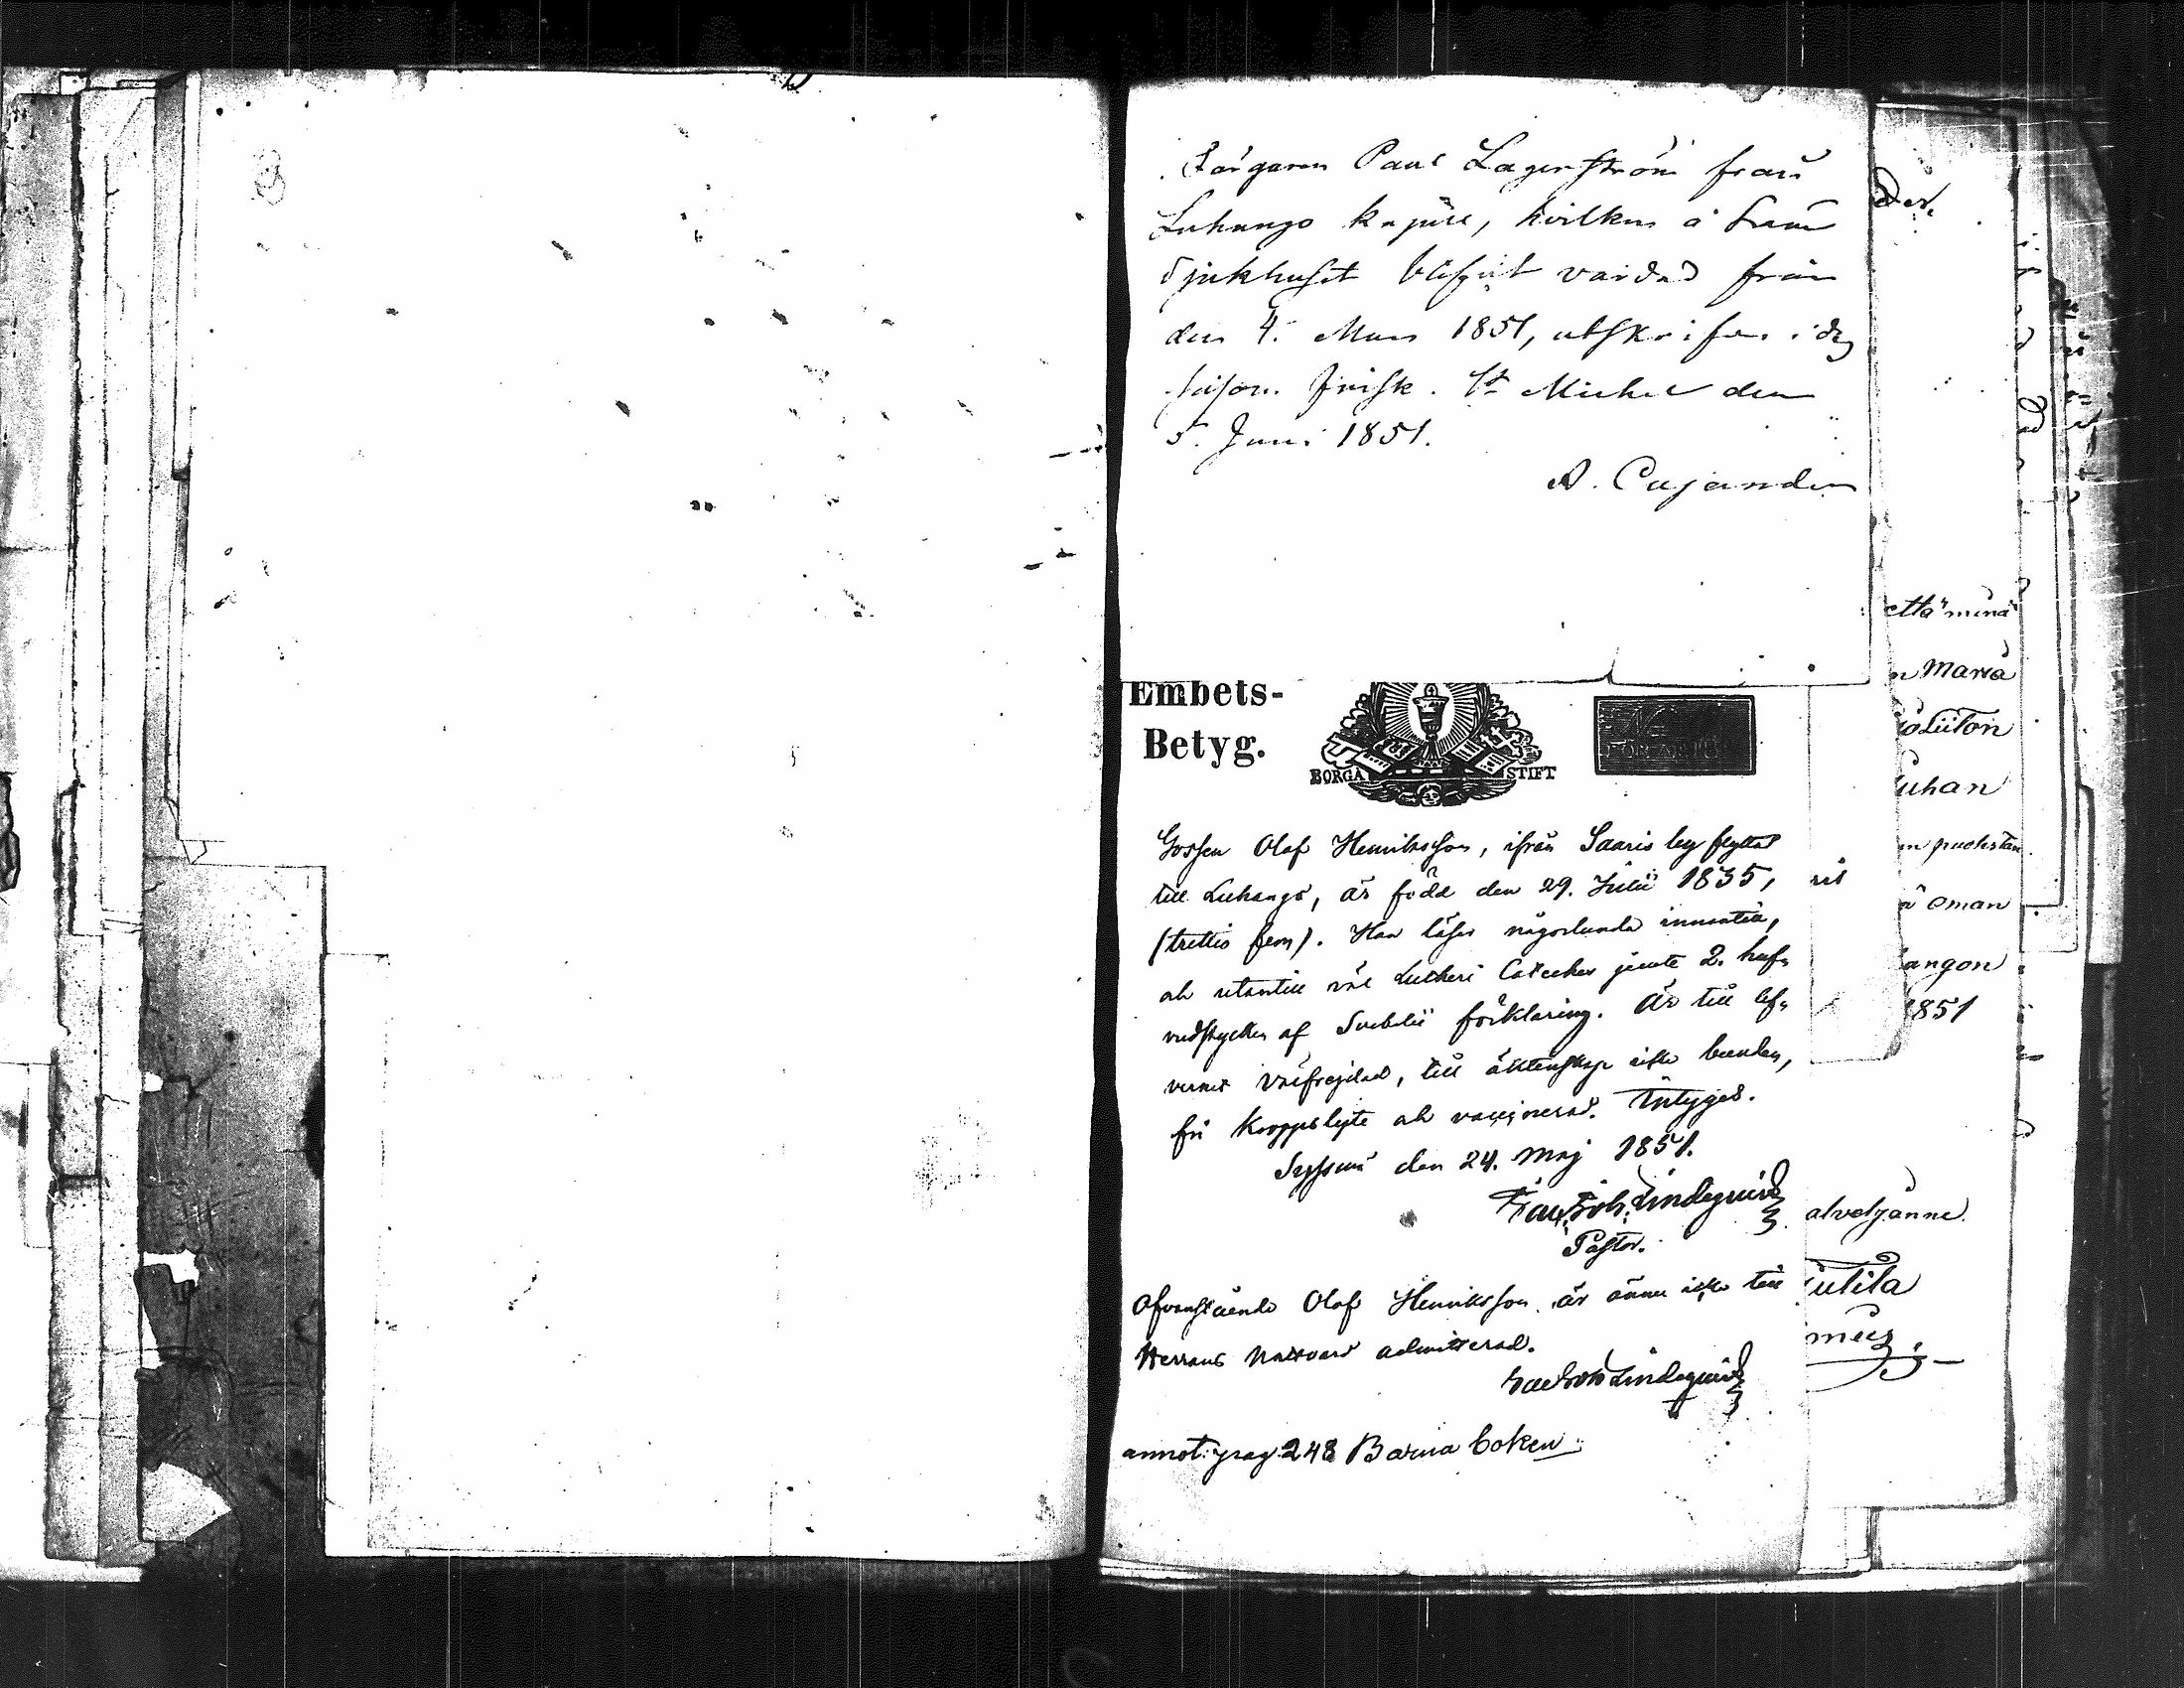 Färgaren Paul Lagerström från
Luhango kapell, hvilken å Läns
Sjukhuset blifvit vårdad från
den 4. Mars 1851, utskrifves i dag
såsom frisk. St Michel den
5. Juni 1851.
A. Cajander
Embets-
Betyg.
BORGÅ STIFT
Gossen Olof Henriksson, ifrån Saaris by flyttad
till Luhango, är född den 29. Julii 1835,
(trettio fem). Han läser någorlunda innantill,
och utantill väl Lutheri Cateches jemte 2. huf-
vudstycken af Svebelii förklaring. Är till lef-
vernet välfrejdad, till äktenskap icke bunden,
fri kroppslyte och vaccinerad. Intygas.
Sysmä den 24. Maj 1851.
Joh. Lindequist
Pastor.
Ofvanstående Olof Henriksson är ännu icke till
Herrans Nattvard admitterad.
Lindequist
annot: pag: 248 Barna boken
der.
että minä
n Maria
Juhan
n puolestan
oman
angon
1851